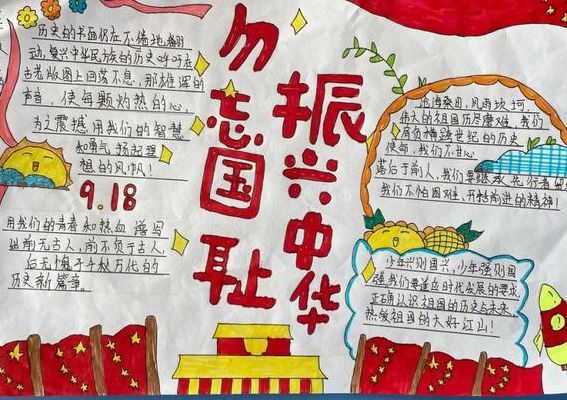 历史的书面仍在不倦地翻
动,复兴中华民族的历史呼吁在
古老版图上回荡不息,那雄浑的
声音,使每颗灼热的心,
为之震撼用我们的智慧
和勇气扬起理
想的风帆!
9.18
用我们的青春和热血谱写
出前无古人,前不负于古人,
后无愧于千秋万代的
历史新篇章。
勿忘国耻
振兴中华
沧海桑田,风雨坎坷,
伟大的祖国历尽磨难,我们
肩负横跨世纪的历史
使命,我们不甘心
落后于前人,我们要继承先行者
我们不怕困难,开拓前进的精神!
少年兴则国兴,少年强则国
强我们要适应时代发展的要求
正确认识祖国的历史与未来,
热爱祖国的大好江山!